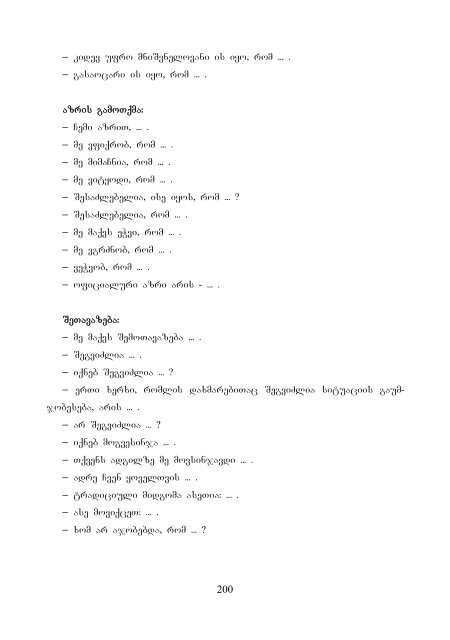 – კიდევ უფრო მნიშვნელოვანი ის იყო, რომ ... .
– გასაოცარი ის იყო, რომ ... .
აზრის გამოთქმა:
– ჩემი აზრით, ... .
– მე ვფიქრობ, რომ ... .
– მე მიმაჩნია, რომ ... .
– მე ვიტყოდი, რომ ... .
– შესაძლებელია, ისე იყოს, რომ ... ?
– შესაძლებელია, რომ ... .
– მე მაქვს ეჭვი, რომ ... .
– მე ვგრძნობ, რომ ... .
– ვეჭვობ, რომ ... .
– ოფიციალური აზრი არის - ... .
შეთავაზება:
– მე მაქვს შემოთავაზება ... .
– შეგვიძლია ... .
– იქნებ შეგვიძლია ... ?
– ერთი ხერხი, რომლის დახმარებითაც შეგვიძლია სიტუაციის გაუმ-
ჯობესება, არის ... .
– არ შეგვიძლია ... ?
– იქნებ მოგვესინჯა ... .
– თქვენს ადგილზე მე მოვსინჯავდი ... .
– ადრე ჩვენ ყოველთვის ... .
– ტრადიციული მიდგომა ასეთია: ... .
– ასე მოვიქცეთ: ... .
– ხომ არ აჯობებდა, რომ ... ?
200